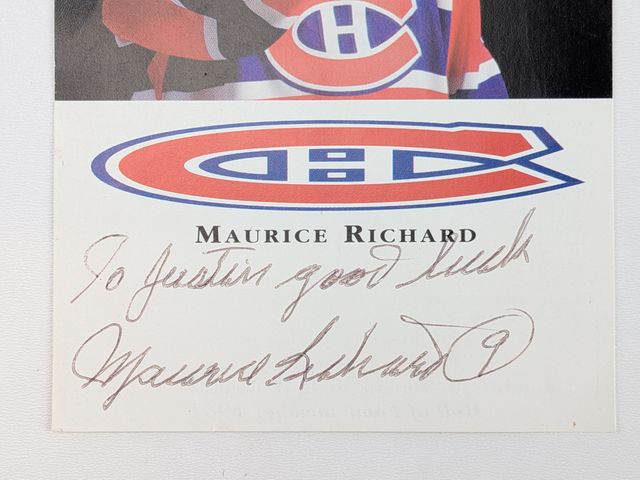 MAURICE RICHARD
To Justin good luck
Maurice Richard 9